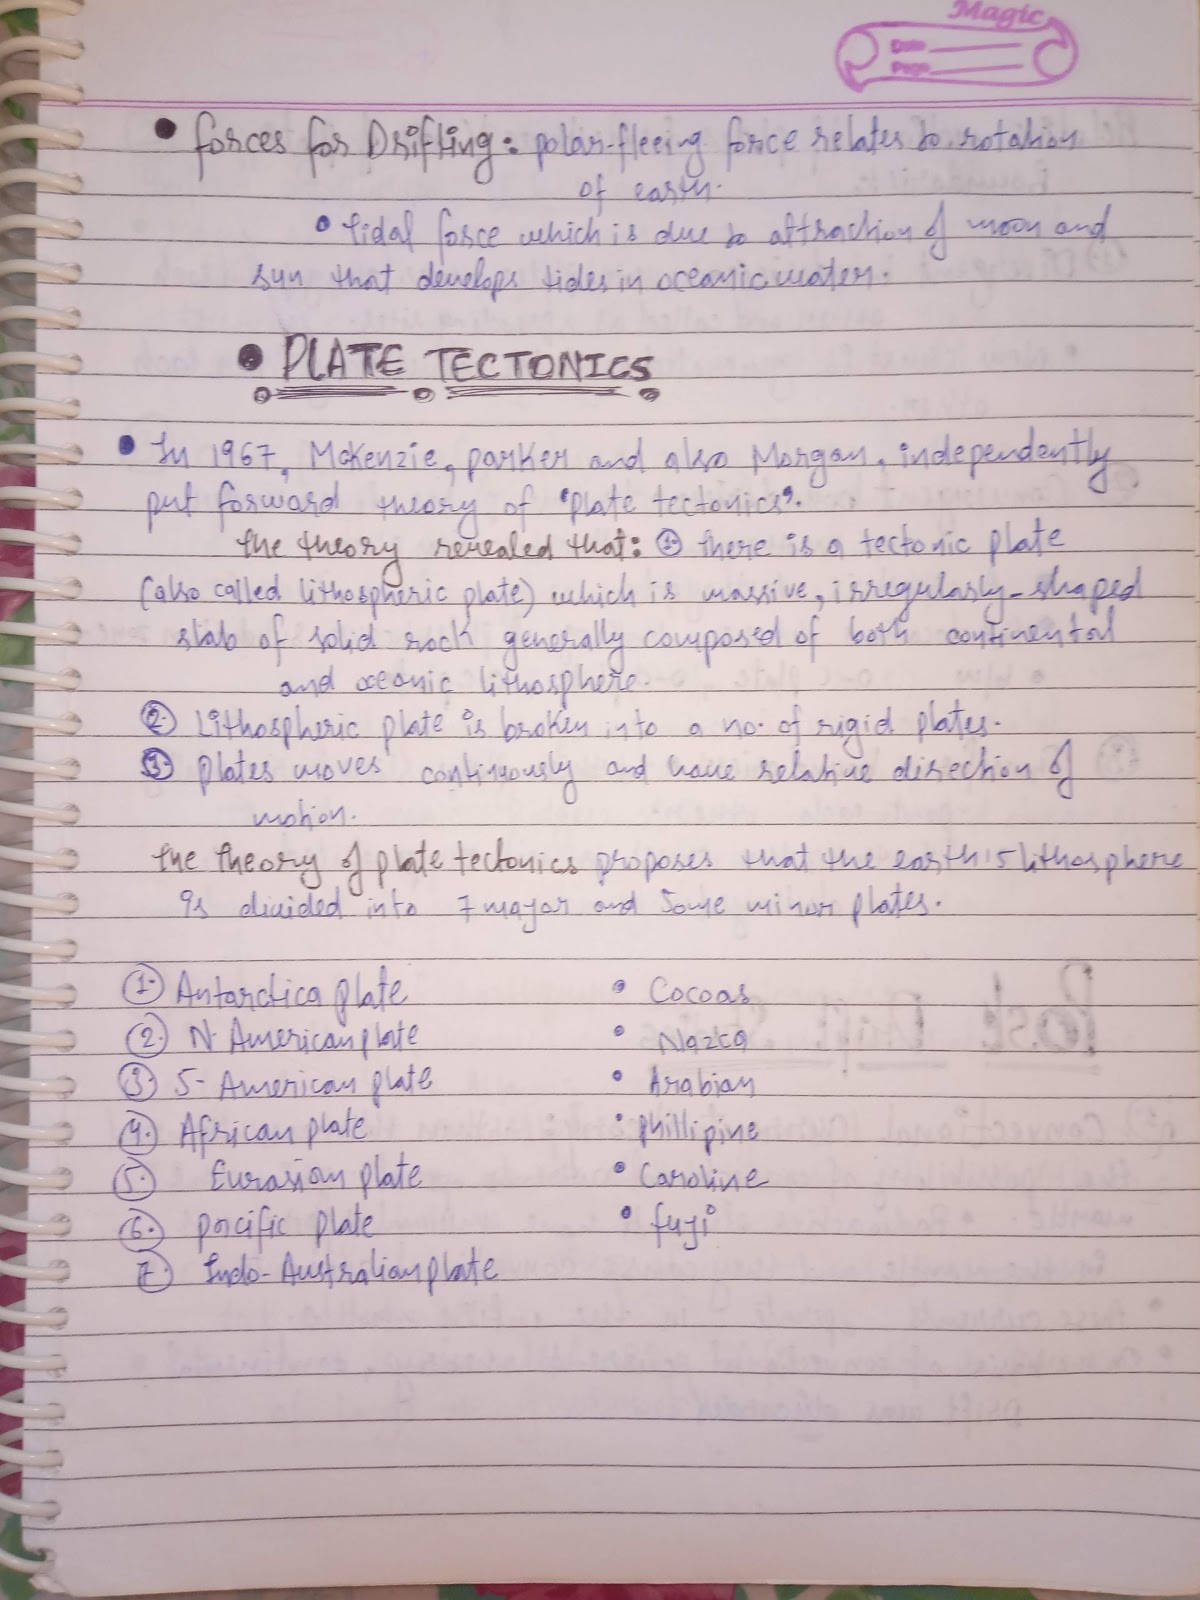 Magic
Date
Page
• forces for Drifting: polar-fleeing force relates to rotation
of earth.
• tidal force which is due to attraction of moon and
sun that develops tides in oceanic water.
• PLATE TECTONICS
• In 1967, McKenzie, parker and also Morgan, independently
put forward theory of "plate tectonics".
the theory revealed that: ① there is a tectonic plate
(also called lithospheric plate) which is massive, irregularly-shaped
slab of solid rock generally composed of both continental
and oceanic lithosphere.
② Lithospheric plate is broken into a no. of rigid plates.
③ plates moves continuously and have relative direction of
motion.
the theory of plate tectonics proposes that the earth's lithosphere
is divided into 7 major and some minor plates.
① Antarctica plate
② N-American plate
③ S-American plate
④ African plate
⑤ Eurasian plate
⑥ pacific plate
⑦ Indo-Australian plate
• Cocoas
• Nazca
• Arabian
• phillipine
• Caroline
• fuji